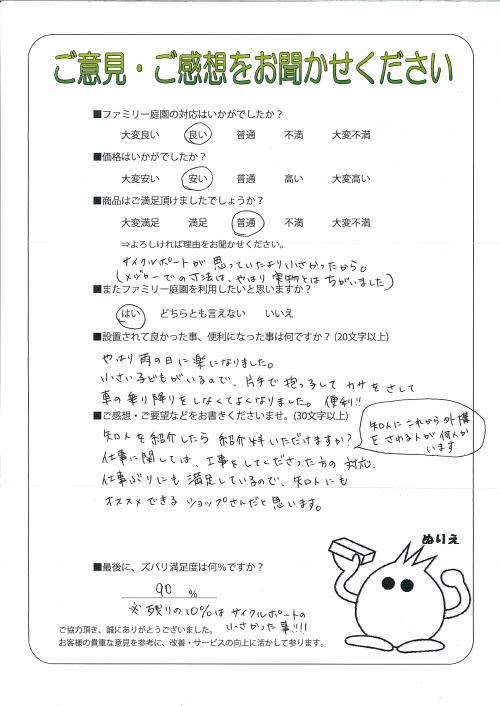 ご意見・ご感想をお聞かせください
■ファミリー庭園の対応はいかがでしたか？
大変良い 良い 普通 不満 大変不満
■価格はいかがでしたか？
大変安い 安い 普通 高い 大変高い
■商品はご満足頂けましたでしょうか？
大変満足 満足 普通 不満 大変不満
⇒よろしければ理由をお聞かせください。
サイクルポートが思っていたより小さかったから。
(メジャーでの寸法は、やはり実物とはちがいました)
■またファミリー庭園を利用したいと思いますか？
はい どちらとも言えない いいえ
■設置されて良かった事、便利になった事は何ですか？(20文字以上)
やはり雨の日に楽になりました。
小さい子どもがいるので、片手で抱っこして カサをさして
車の乗り降りをしなくてよくなりました。便利!!
■ご感想・ご要望などをお書きくださいませ。(30文字以上)
知人を紹介したら紹介料いただけますか?
知人にこれから外構
をされる人が何人か
います
仕事に関しては、工事をしてくださった方の対応、
仕事ぶりにも満足しているので、知人にも
オススメできるショップさんだと思います。
■最後に、ズバリ満足度は何％ですか？
90 %
※残りの10%はサイクルポートの
小さかった事!!!!
ご協力頂き、誠にありがとうございました。
お客様の貴重な意見を参考に、改善・サービスの向上に活かして参ります。
ぬりえ